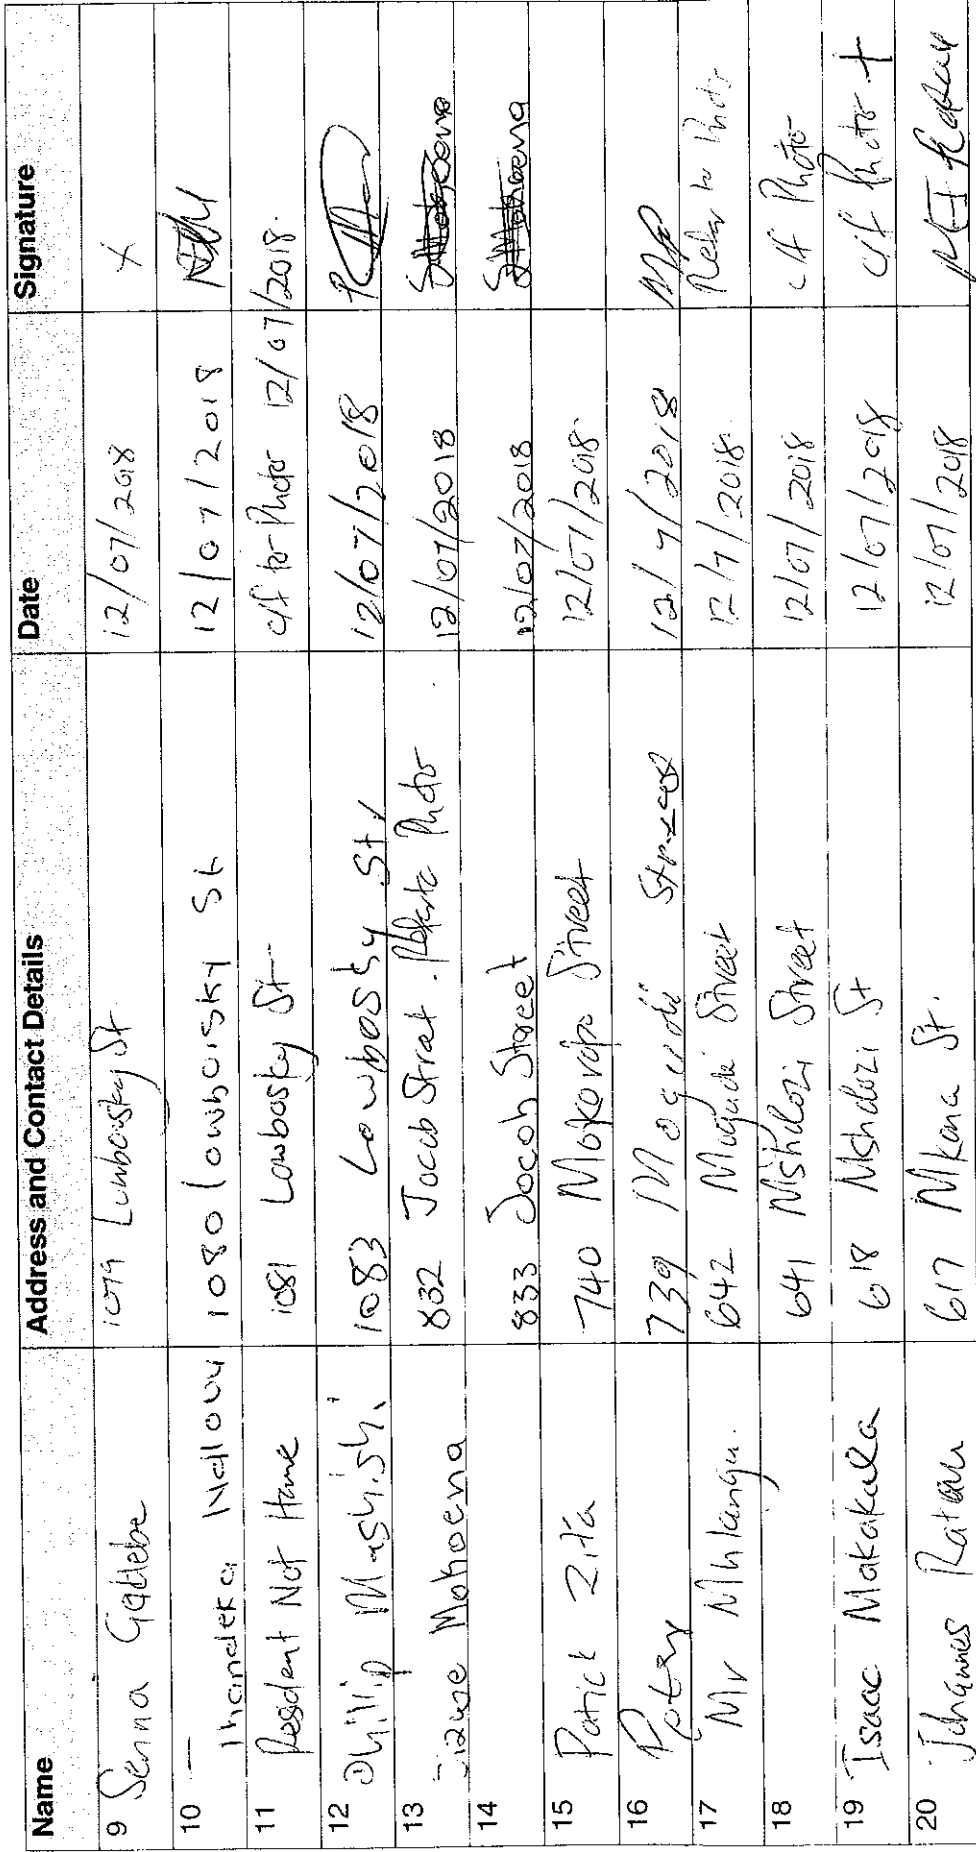 Name Address and Contact Details Date Signature
9 Senna 1079 Lowbosky St 12/07/2018 X
10 Thandeka Ndlovu 1080 lowbosky St 12/07/2018
11 Resident Not Home 1081 Lowbosky St c/f for Photo 12/07/2018.
12 Phillip Mashishi 1083 Lowbosky St. 12/07/2018
13 Mokoena 832 Jacob Street. Photo 12/07/2018
14 833 Jacob Street 12/07/2018
15 Patick Zita 740 Street 12/07/2018.
16 739 Street 12/7/2018
17 Mr Mhlangu. 642 Street 12/7/2018. Refer to Photo
18 641 Mshdozi Street 12/07/2018 c/f Photo
19 Isaac Makakula 618 Mshdozi St 12/07/2018 c/f Photo +
20 Johannes 617 Mkona St. 12/07/2018